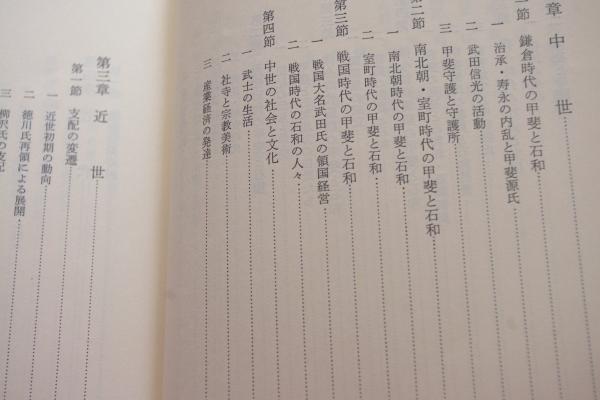 章 中 世
一節 鎌倉時代の甲斐と石和
一 治承・寿永の内乱と甲斐源氏
二 武田信光の活動
三 甲斐守護と守護所
二節 南北朝・室町時代の甲斐と石和
一 南北朝時代の甲斐と石和
二 室町時代の甲斐と石和
第三節 戦国時代の甲斐と石和
一 戦国大名武田氏の領国経営
二 戦国時代の石和の人々
第四節 中世の社会と文化
一 武士の生活
二 社寺と宗教美術
三 産業経済の発達
第三章 近 世
第一節 支配の変遷
一 近世初期の動向
二 徳川氏再領による展開
三 柳沢氏の支配